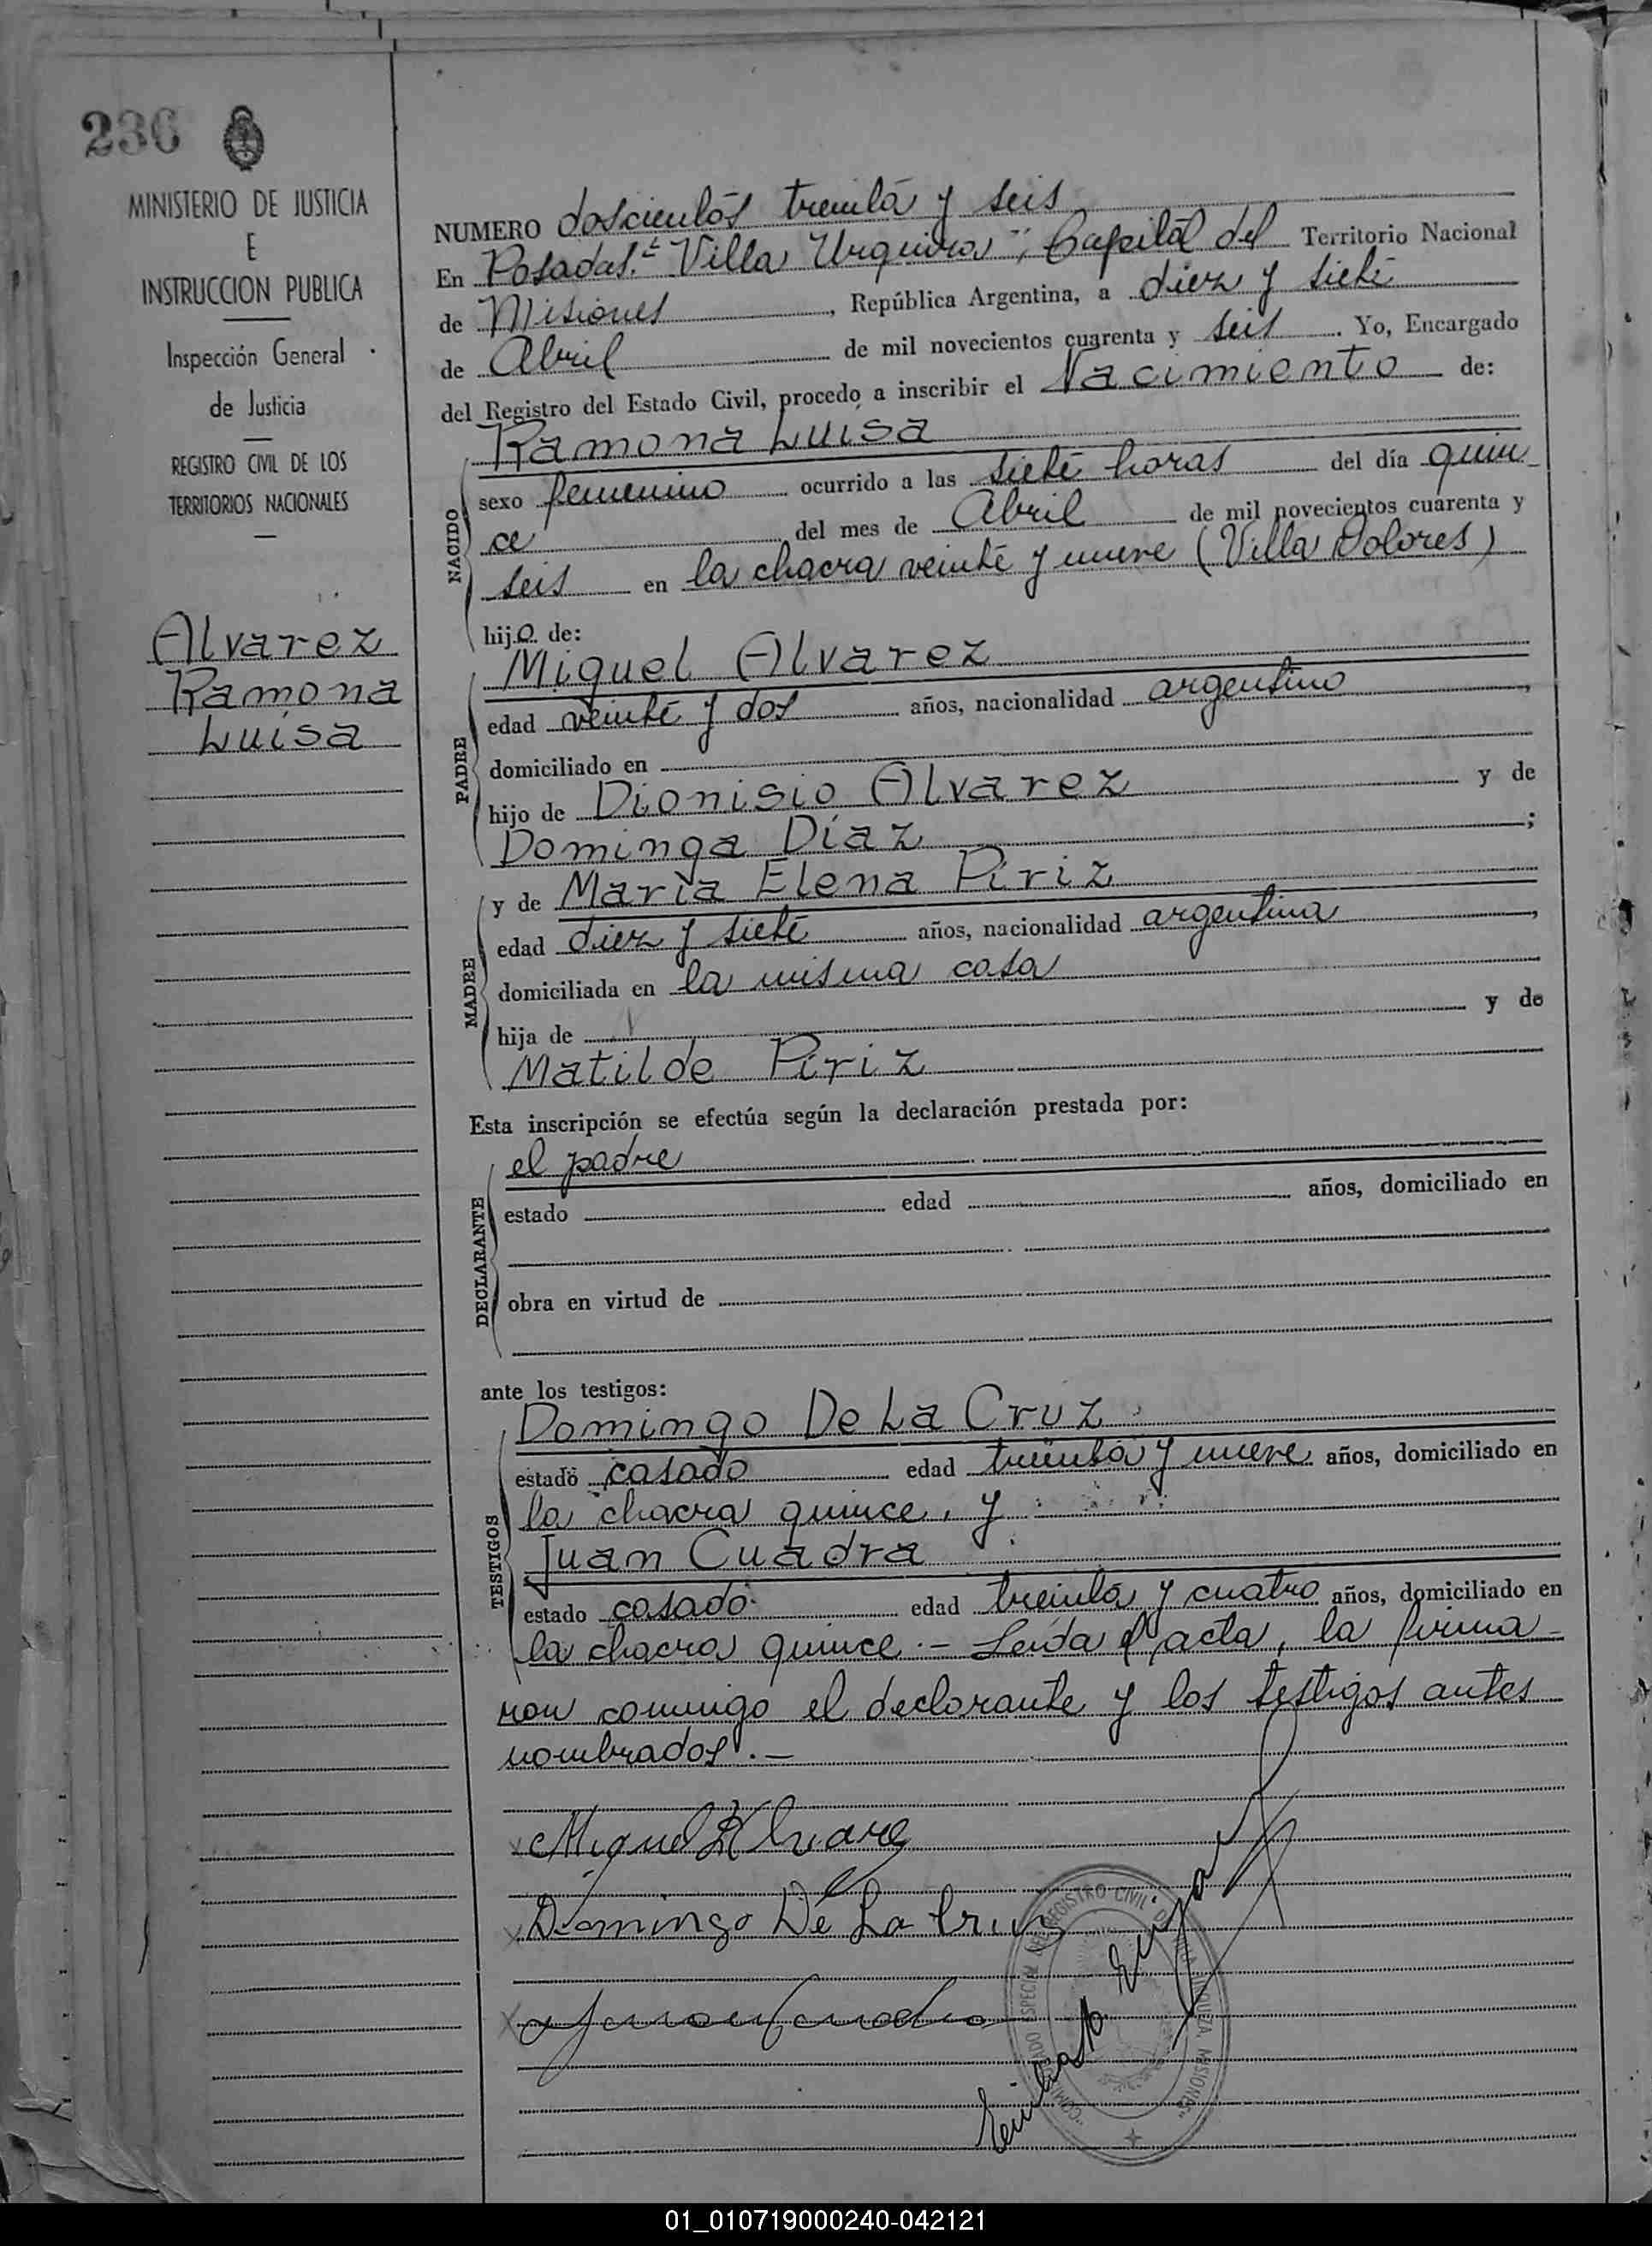 236
MINISTERIO DE JUSTICIA
E
INSTRUCCION PUBLICA
Inspección General
de Justicia
REGISTRO CIVIL DE LOS
TERRITORIOS NACIONALES
Alvarez
Ramona
Luisa
NUMERO doscientos treinta y seis
En Posadas "Villa Urquiza", Capital del Territorio Nacional
de Misiones, República Argentina, a diez y siete
de Abril de mil novecientos cuarenta y seis. Yo, Encargado
del Registro del Estado Civil, procedo a inscribir el Nacimiento de:
NACIDO
Ramona Luisa
sexo femenino ocurrido a las siete horas del día quin
ce del mes de Abril de mil novecientos cuarenta y
seis en la chacra veinte y nueve (Villa Dolores)
hijo de:
PADRE
Miguel Alvarez
edad veinte y dos años, nacionalidad argentino,
domiciliado en
hijo de Dionisio Alvarez y de
Dominga Díaz;
MADRE
y de María Elena Piriz
edad diez y siete años, nacionalidad argentina,
domiciliada en la misma casa
hija de y de
Matilde Piriz
Esta inscripción se efectúa según la declaración prestada por:
DECLARANTE
el padre
estado edad años, domiciliado en
obra en virtud de
ante los testigos:
TESTIGOS
Domingo De La Cruz
estado casado edad treinta y nueve años, domiciliado en
la chacra quince, y
Juan Cuadra
estado casado edad treinta y cuatro años, domiciliado en
la chacra quince.- Leida el acta, la firma-
ron conmigo el declarante y los testigos antes
nombrados.-
Miguel Alvarez
Domingo De La Cruz
Juan Cuadra
REGISTRO CIVIL MISIONES
01_010719000240-042121